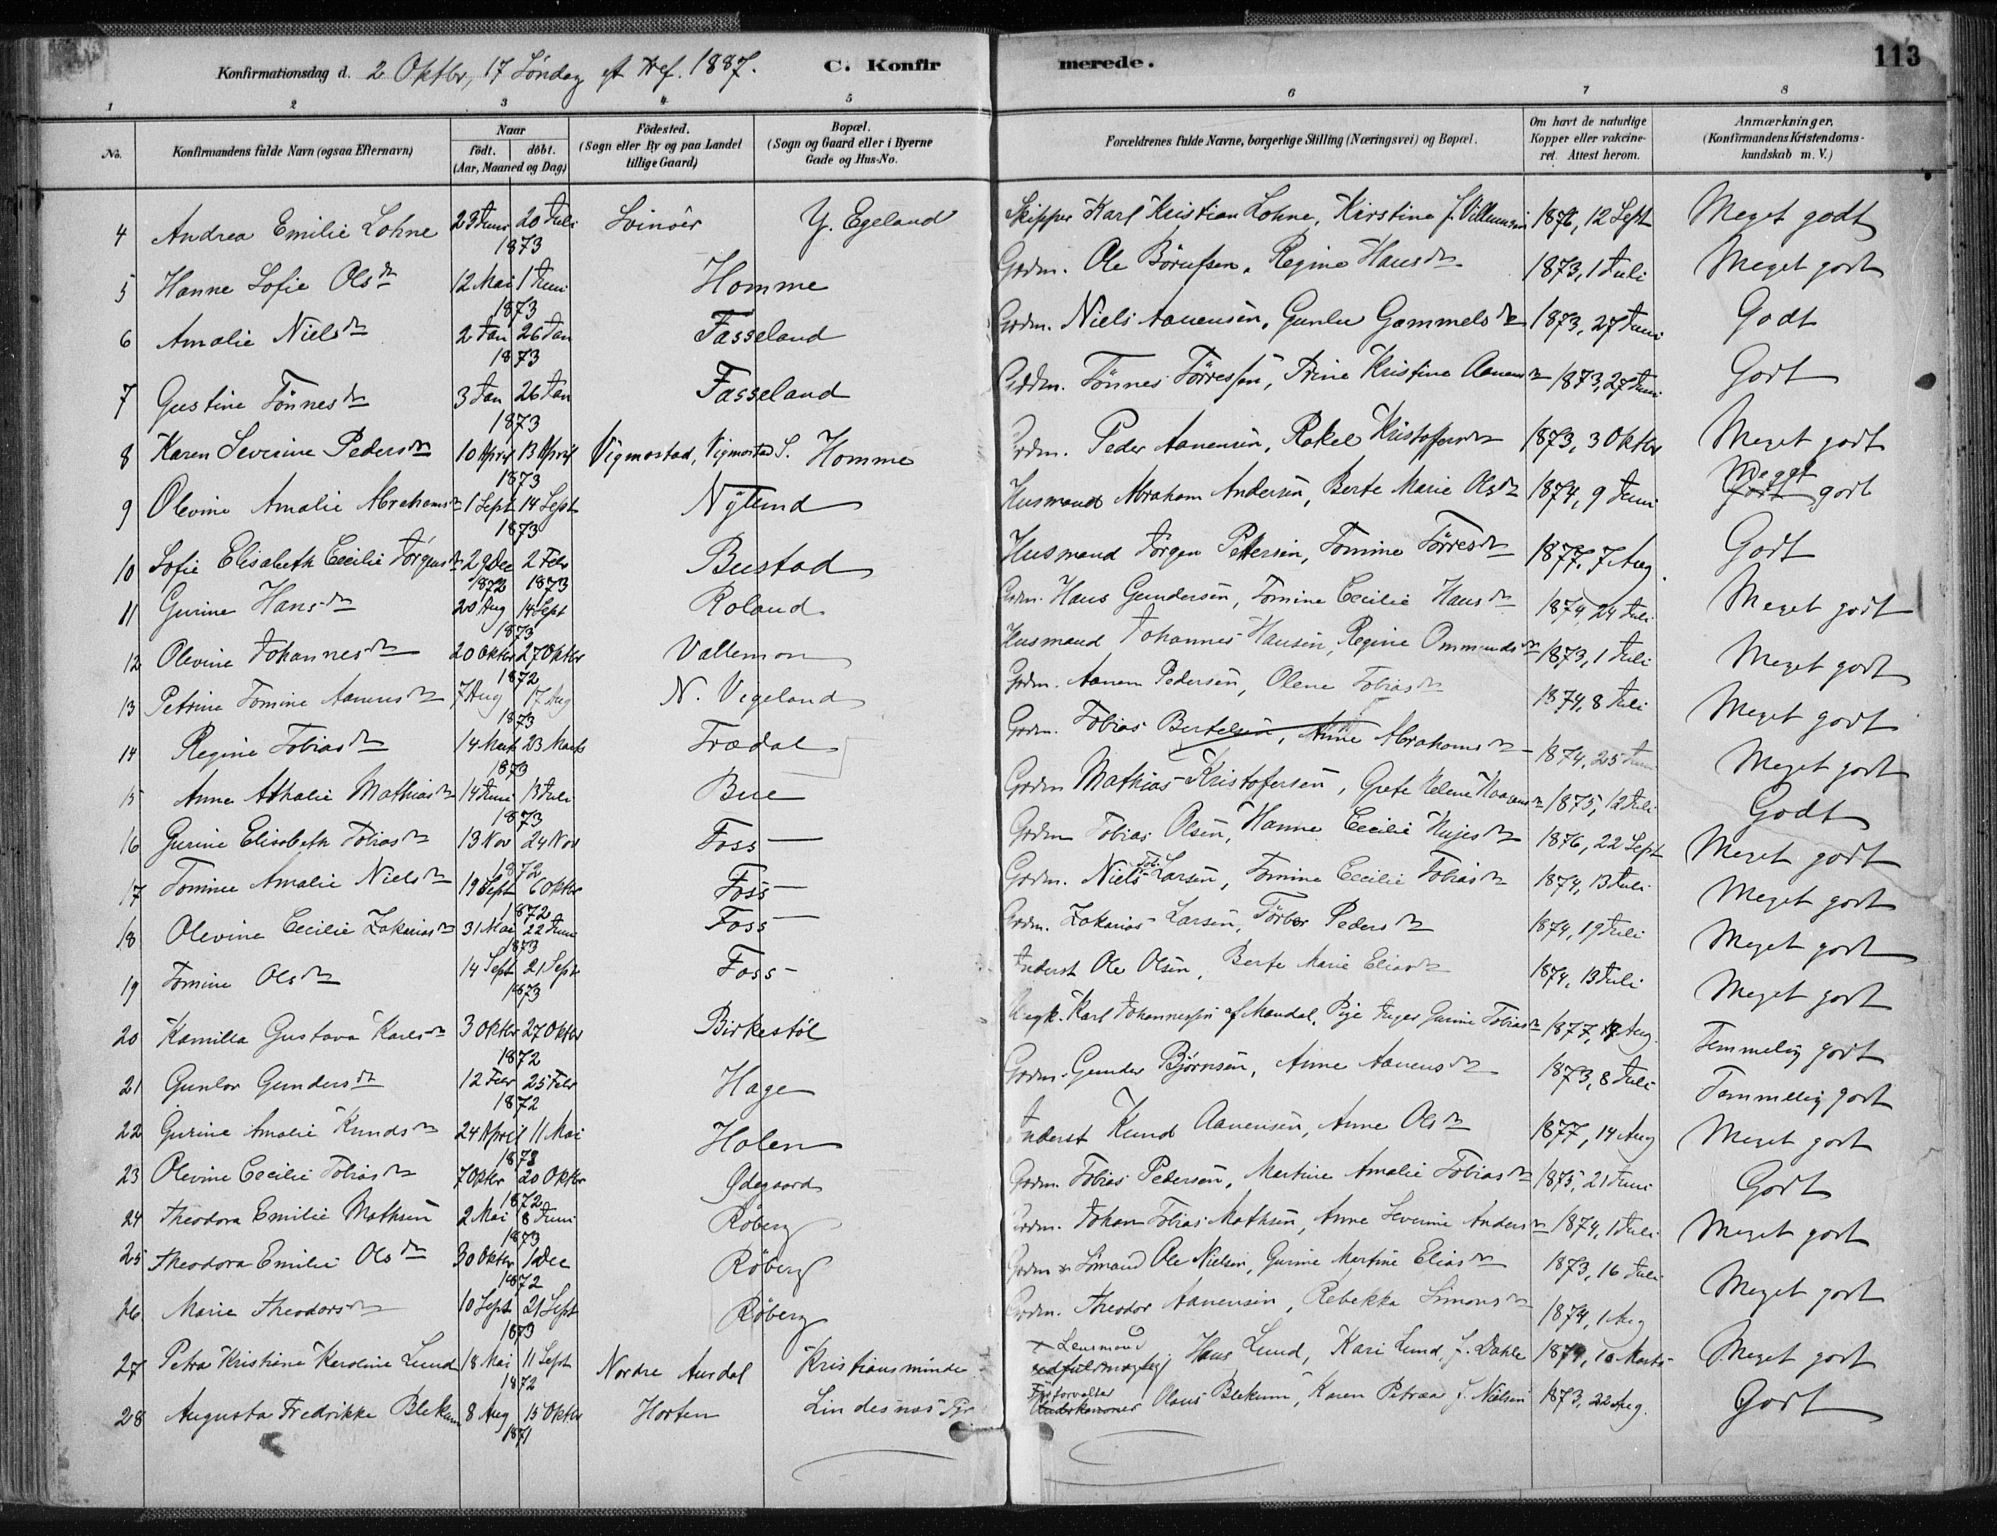 113
Konfirmationsdag d. 2 Oktbr, 17 Söndag eft Tref. 1887. C. Konfirmerede.
1 2 3 4 5 6 7 8
No. Konfirmandens fulde Navn (ogsaa Efternavn) Naar födt. döbt. (Aar, Maaned og Dag) Födested. (Sogn eller By og paa Landet tillige Gaard) Bopæl. (Sogn og Gaard eller i Byerne Gade og Hus-No. Forældrenes fulde Navne, borgerlige Stilling (Næringsvei) og Bopæl. Om havt de naturlige Kopper eller vakcineret. Attest herom. Anmærkninger, (Konfirmandens Kristendomskundskab m. V.)
4 Andrea Emilie Lohne 23 Juni 20 Juli 1873 Svinöer Y. Egeland Skipper Karl Kristian Lohne, Kirstine f. Villumsen 1876, 12 Sept Meget godt
5 Hanne Sofie Olsdtr 12 Mai 1 Juni 1873 Homme Grdm. Ole Börufsen, Regine Hansdtr 1873, 1 Juli Meget godt
6 Amalie Nielsdtr 2 Jan 26 Jan 1873 Fasseland Grdm. Niels Aanensen, Gunlu Gammelsdtr 1873, 27 Juni Godt
7 Gustine Tönnesdtr 3 Jan 26 Jan 1873 Fasseland Grdm. Tönnes Törressen, Trine Kristine Aanensdtr 1873, 27 Juni Godt
8 Karen Severine Pedersdtr 10 April 13 April 1873 Vigmostad, Vigmostad S. Homme Grdm. Peder Aanensen, Rakel Kristoffersdtr 1873, 3 Oktbr Meget godt
9 Olevine Amalie Abrahamsdtr 1 Sept 14 Sept 1873 Nylund Husmand Abraham Andersen, Berte Marie Olsdtr 1874, 9 Juni Meget godt
10 Sofie Elisabeth Cecilie Jörgensdtr 29 Dec 1872 2 Febr 1873 Bustad Husmand Jörgen Pettersen, Tomine Törresdtr 1877, 7 Aug. Godt
11 Gurine Hansdtr 20 Aug 14 Sept 1873 Roland Grdm. Hans Gundersen, Tomine Cecilie Hansdtr 1874, 24 Juli Meget godt
12 Olevine Johannesdtr 20 Oktbr 27 Oktbr 1872 Vallemon Husmand Johannes Hansen, Regine Ommundsdtr 1873, 1 Juli Meget godt
13 Petrine Tomine Aanensdtr 7 Aug 17 Aug 1873 N. Vigeland Grdm. Aanen Pedersen, Olene Tobiasdtr 1874, 8 Juli Meget godt
14 Regine Tobiasdtr 14 Mark 23 Marts 1873 Trædal Grdm. Tobias Bertelsen, Anne Abrahamsdtr 1874, 25 Juni Meget godt
15 Anne Athalie Mathiasdtr 14 Juni 13 Juli 1873 Bue Grdm Mathias Kristofersen, Grete Helene Haavensdtr 1875, 12 Juli Godt
16 Gurine Elisabeth Tobiasdtr 13 Nov 24 Nov 1872 Foss Grdm Tobias Olsen, Hanne Cecilie dtr 1876, 22 Sept Meget godt
17 Tominee Amalie Nielsdtr 19 Sept 6 Oktbr 1872 Foss Grdm. Niels Tob. Larsen, Tomine Cecilie Tobiasdtr 1874, 13 Juli Meget godt
18 Olevine Cecilie Zakariasdtr 31 Mai 22 Juni 1873 Foss Grdm. Zakarias Larsen, Törber Pedersdtr 1874, 19 Juli Meget godt
19 Tomine Olsdtr 14 Sept 21 Sept 1873 Foss Inderst Ole Olsen, Berte Marie Eliasdtr 1874, 13 Juli Meget godt
20 Kamilla Gustava Karlsdtr 3 Oktbr 27 Oktbr 1872 Birkestöl Ungk. Karl Johannessen af Mandal, Pige Inger Gurine Tobiasdtr 1877, 17 Aug. Temmelig godt
21 Gunlor Gundersdtr 12 Febr 25 Febr 1872 Hage Grdm. Gunder Björnsen, Anne Aanensdtr 1873, 8 Juli Temmelig godt
22 Gurine Amalie Knudsdtr 24 April 11 Mai 1873 Holen Inderst Knud Aanensen, Anne Olsdtr 1877, 14 Aug Meget godt
23 Olevine Cecilie Tobiasdtr 7 Oktbr 20 Oktbr 1872 Ødegaard Grdm. Tobias Pedersen, Martine Amalie Tobiasdtr 1875, 21 Juni Godt
24 Theodora Emilie Mathsen 2 Mai 8 Juni 1873 Röberg Grdm. Johan Tobias Mathsen, Anne Severine Andersdtr 1874, 1 Juli Meget godt
25 Theodora Emilie Olsdtr 30 Oktbr 1 Dec 1872 Röberg Grdm & Sömand Ole Nielsen, Gurine Martine Eliasdtr 1873, 16 Juli Meget godt
26 Marie Theodorsdtr 10 Sept 21 Sept 1873 Röberg Grdm. Theodor Aanensen, Rebekka Simonsdtr 1874, 1 Aug
27 Petra Kristiane Karoline Lund 18 Mai 11 Sept 1872 Nordre Aurdal Kristiansminde Lensmand Hans Lund, Kari Lund, f. Dahle 1879, 10 Marts Meget godt
28 Augusta Fredrikke Blekum 8 Aug 15 Oktbr 1871 Horten Lindesnæs Fyr Fyrforvalter Underkanoner Olaus Blekum, Karen Petræa f. Nilsen 1873, 22 Aug. Godt